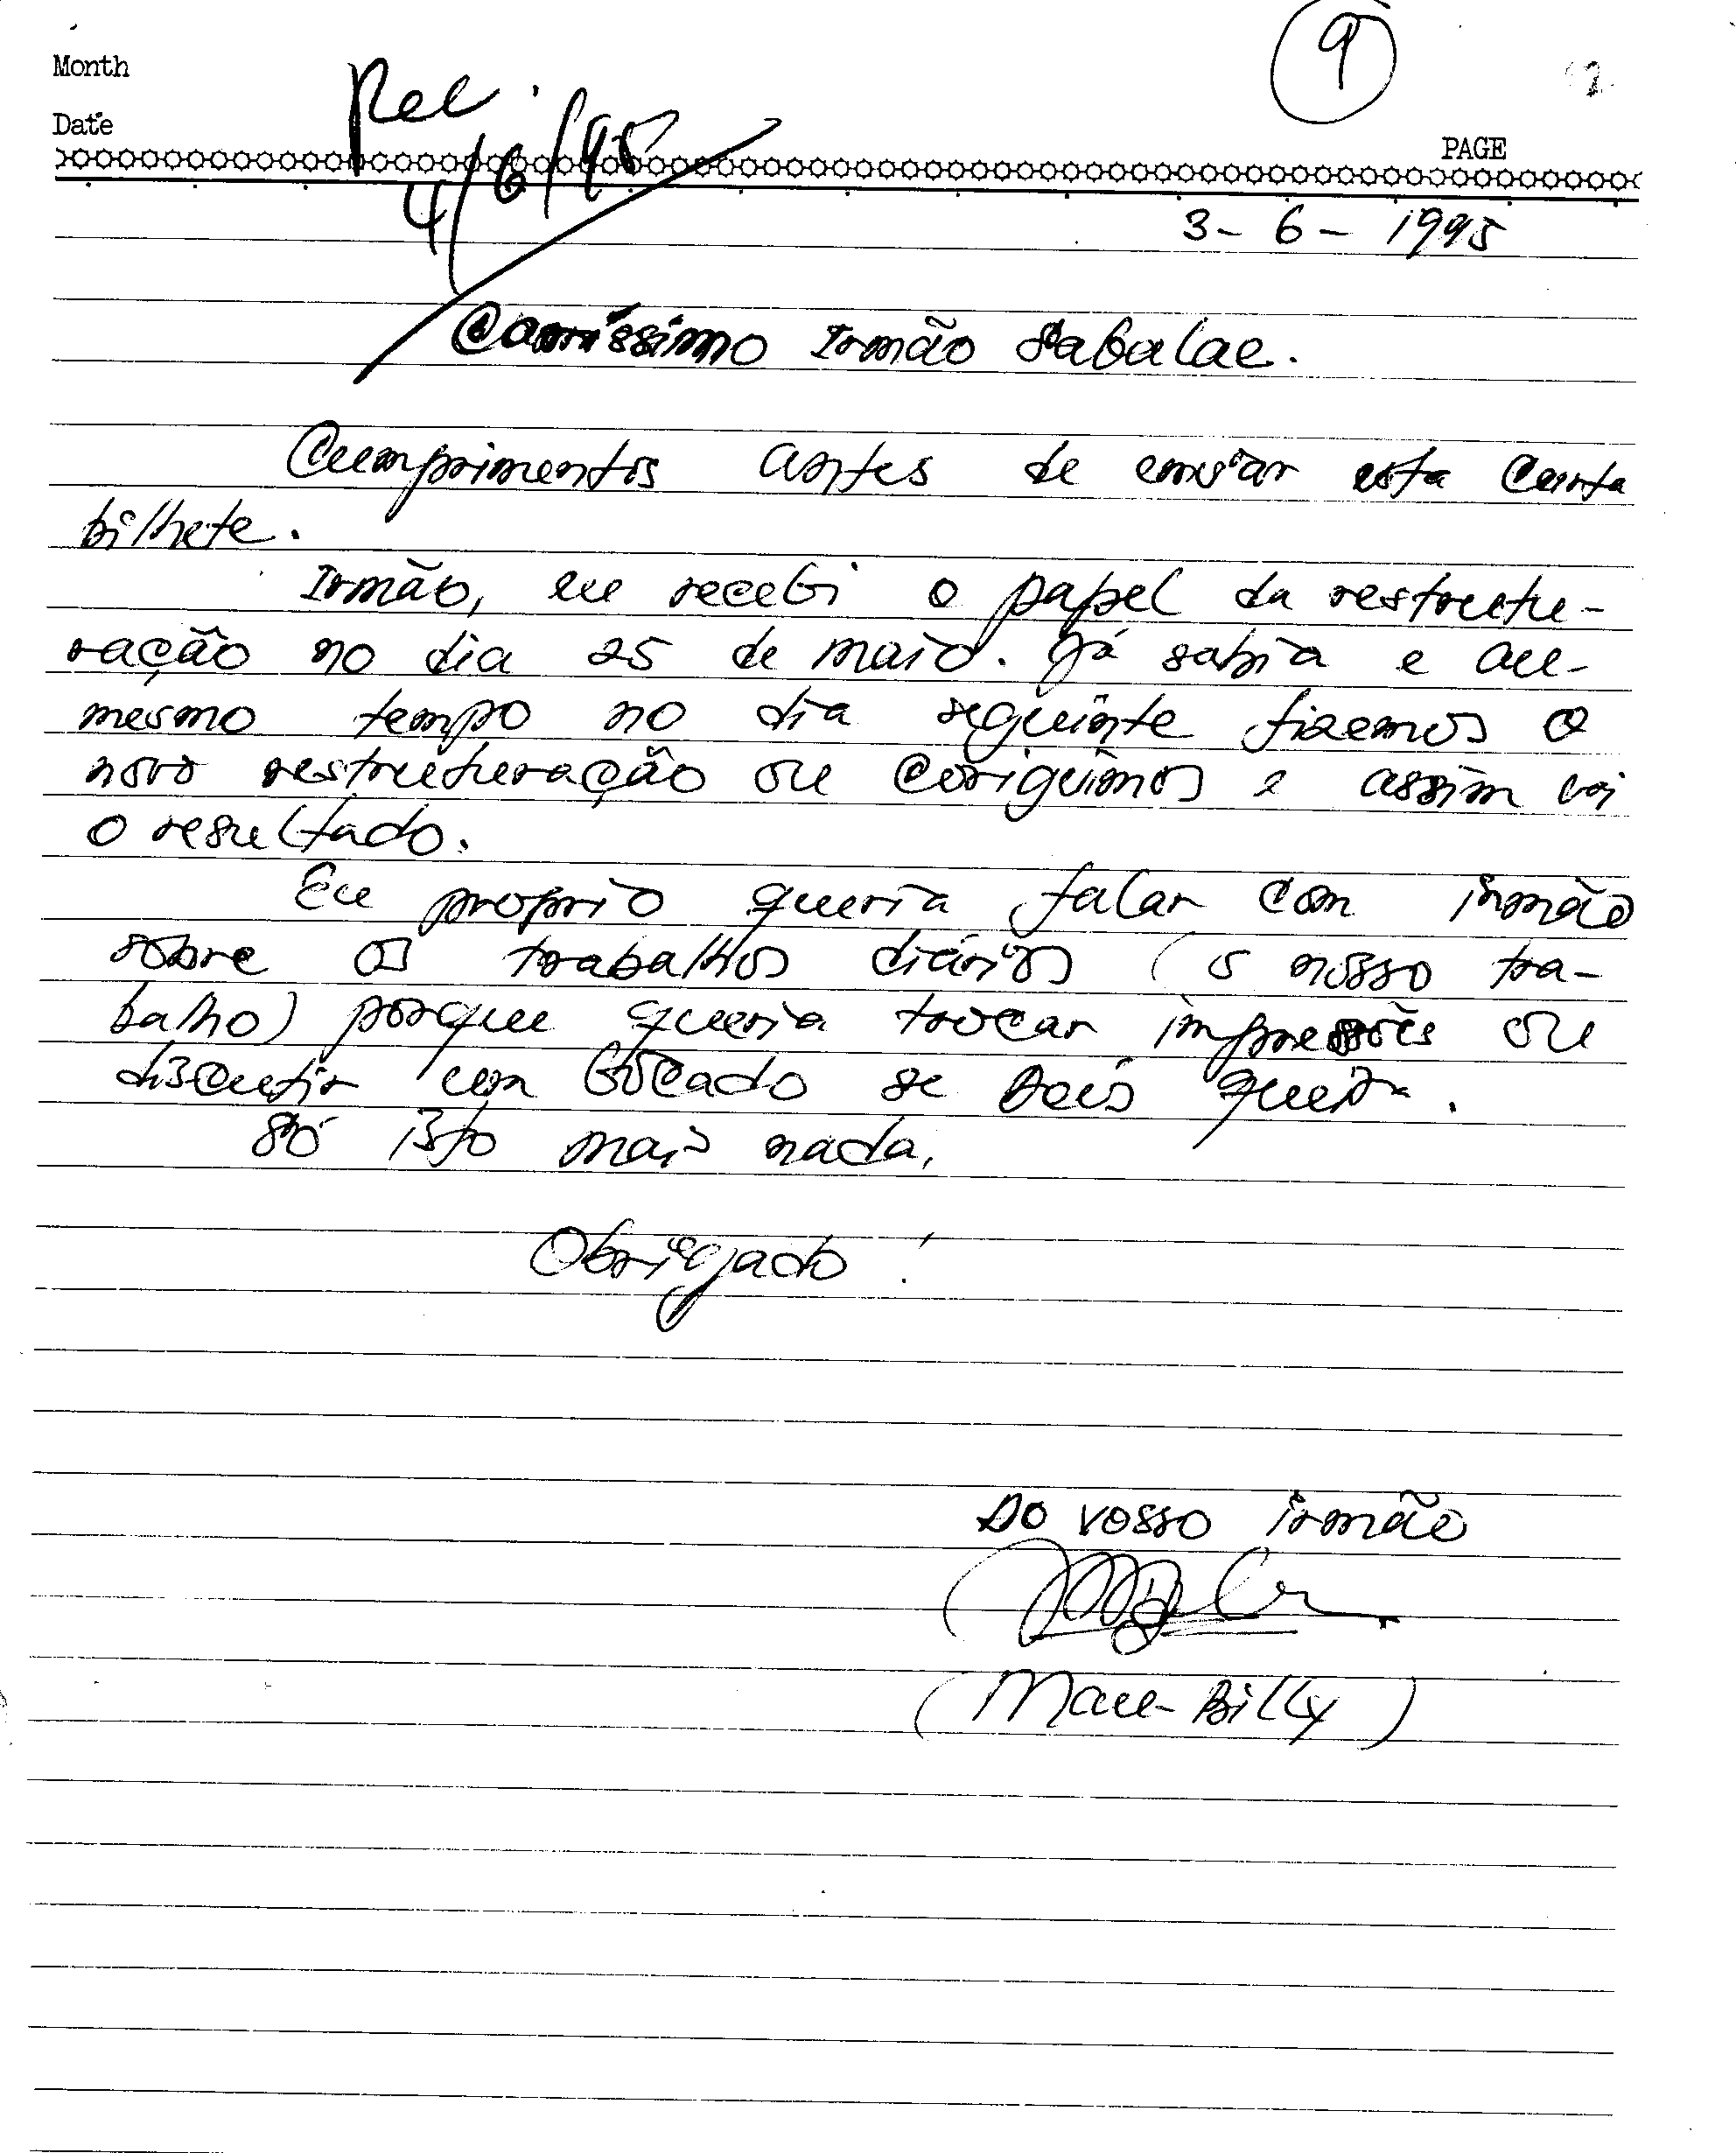 9
Month
Rec.
Date
4/6/95
PAGE
3-6-1995
Caríssimo Irmão Sabalae.
Cumprimentos antes de enviar esta Carta
bilhete.
Irmão, eu recebi o papel da restrutu-
ração no dia 25 de maio. Já sabia e au-
mesmo tempo no dia seguinte fizemos o
novo restruturação ou Coriguimos e assim voi
o resultado.
Eu proprio queria falar com irmão
sobre os trabalhos diários (o nosso tra-
balho) porque queria trocar impressões ou
discutir um bocado se Deus queira.
Só isto mais nada.
Obrigado!
Do vosso irmão
(Mau-Billy)